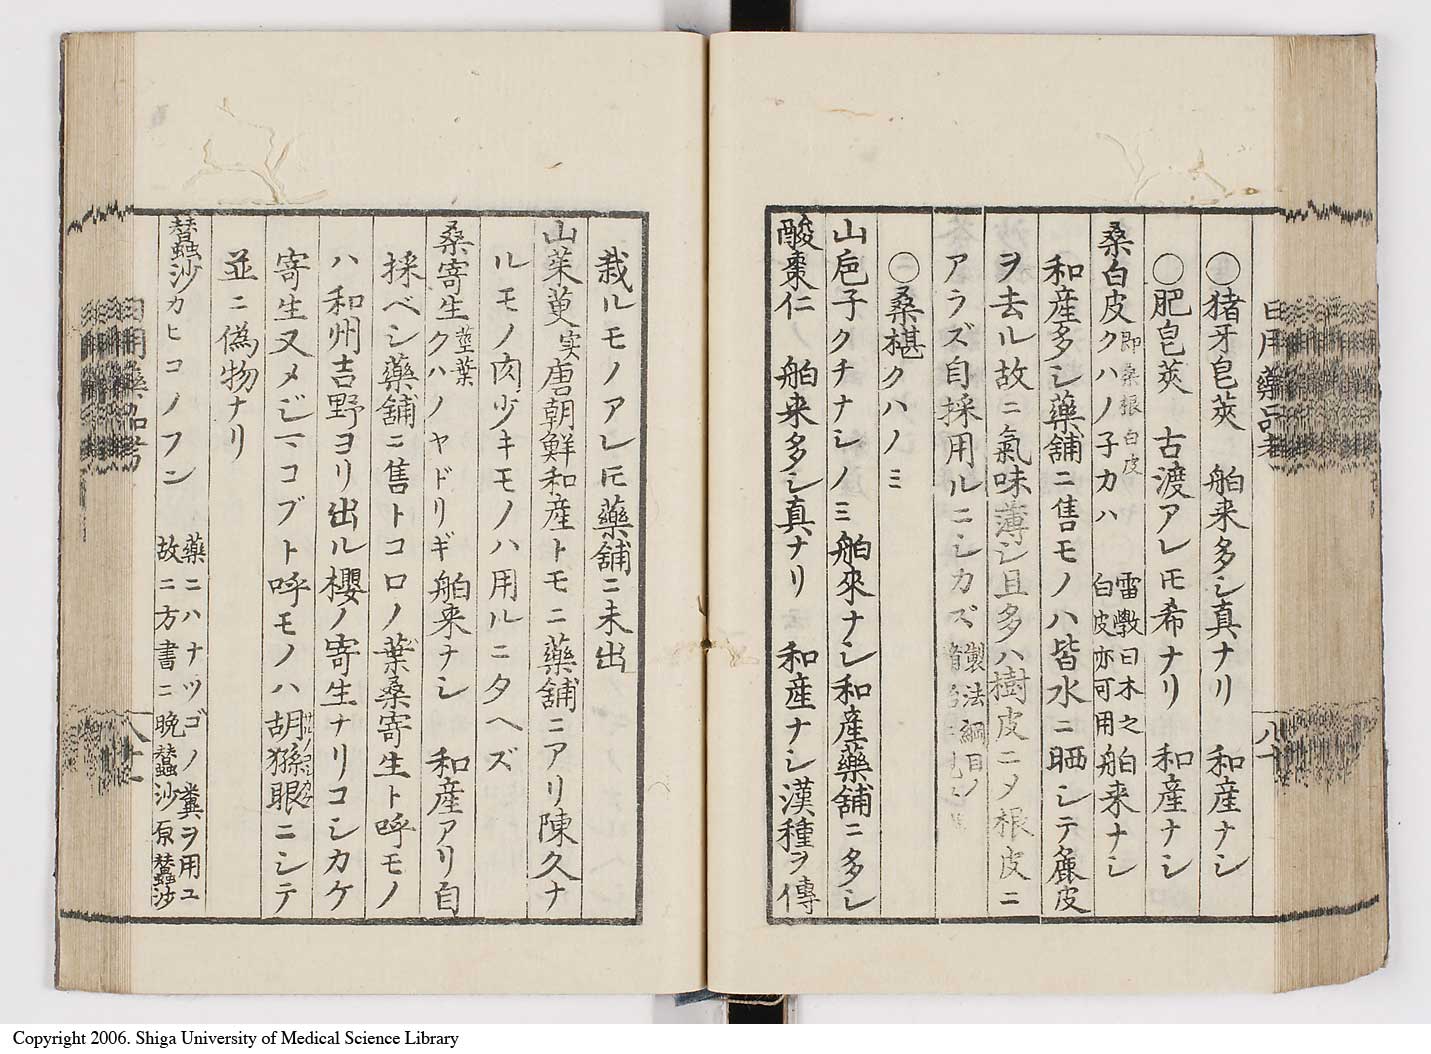 日用藥品考
八十
〇猪牙皂莢 舶来多シ真ナリ 和産ナシ
〇肥皂莢 古渡アレ𪜈希ナリ 和産ナシ
桑白皮 即桑根白皮 クハノ子カハ 雷斆曰木之白皮亦可用 舶来ナシ
和産多シ藥舗ニ售モノハ皆水ニ晒シテ麁皮
ヲ去ル故ニ氣味薄シ且多ハ樹皮ニ〆根皮ニ
アラズ自採用ルニシカズ 製法綱目ノ
〇桑椹 クハノミ
山巵子 クチナシノミ 舶來ナシ和産藥舗ニ多シ
酸棗仁 舶来多シ真ナリ 和産ナシ漢種ヲ傳
栽ルモノアレ𪜈藥舗ニ未出
山茱萸 実 唐朝鮮和産トモニ藥舗ニアリ陳久ナ
ルモノ肉少キモノハ用ルニタヘズ
桑寄生 莖葉 クハノヤドリギ 舶来ナシ 和産アリ自
採ベシ藥舗ニ售トコロノ葉桑寄生ト呼モノ
ハ和州吉野ヨリ出ル櫻ノ寄生ナリコシカケ
寄生又メジマコブト呼モノハ胡猻眼 サルノコシカケ ニシテ
並ニ偽物ナリ
蠶沙 カヒコノフン 藥ニハナツゴノ糞ヲ用ユ
故ニ方書ニ晩蠶沙原蠶沙
日用藥品考
八十一
Copyright 2006. Shiga University of Medical Science Library